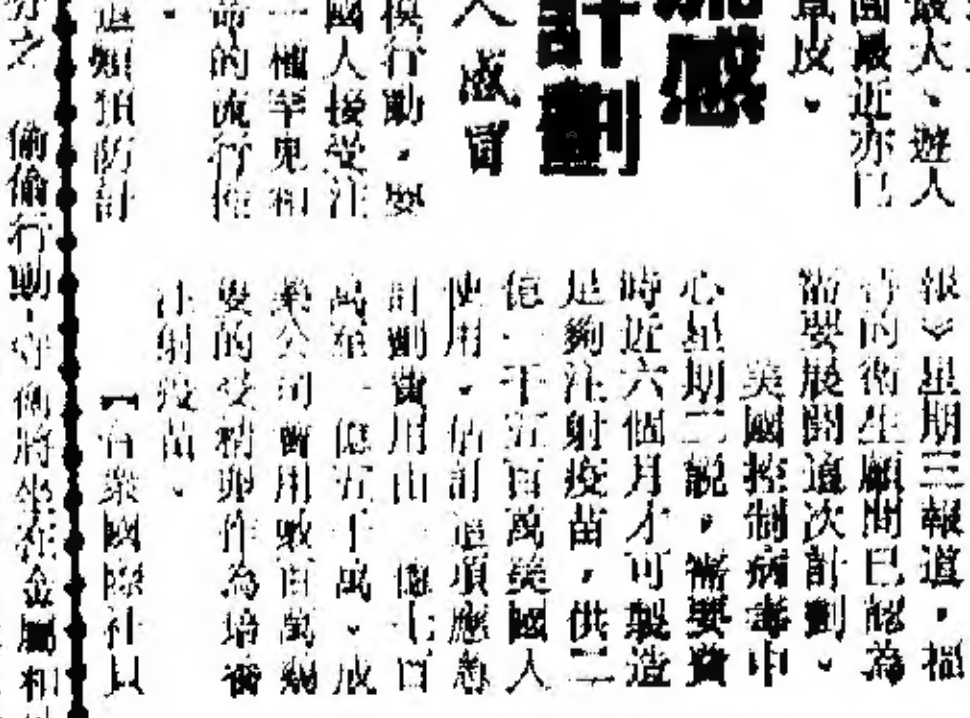 最大、遊人
園最近亦已
草皮。
流感
計劃
人感冒
模行動，要
國人接受注
一種罕見和
命的流行性
這類預防計
報》星期三報道，福
特的衛生顧問已認為
需要展開這次計劃。
美國控制病毒中
心星期二說，需要費
時近六個月才可製造
足夠注射疫苗，供二
億一千五百萬美國人
使用。估計這項應急
計劃費用由一億七百
萬至一億五千萬。成
業公司會用數百萬
要的受精卵作為培養
注射疫苗。
【合眾國際社
亦之 偷偷行動，
將坐在金屬和